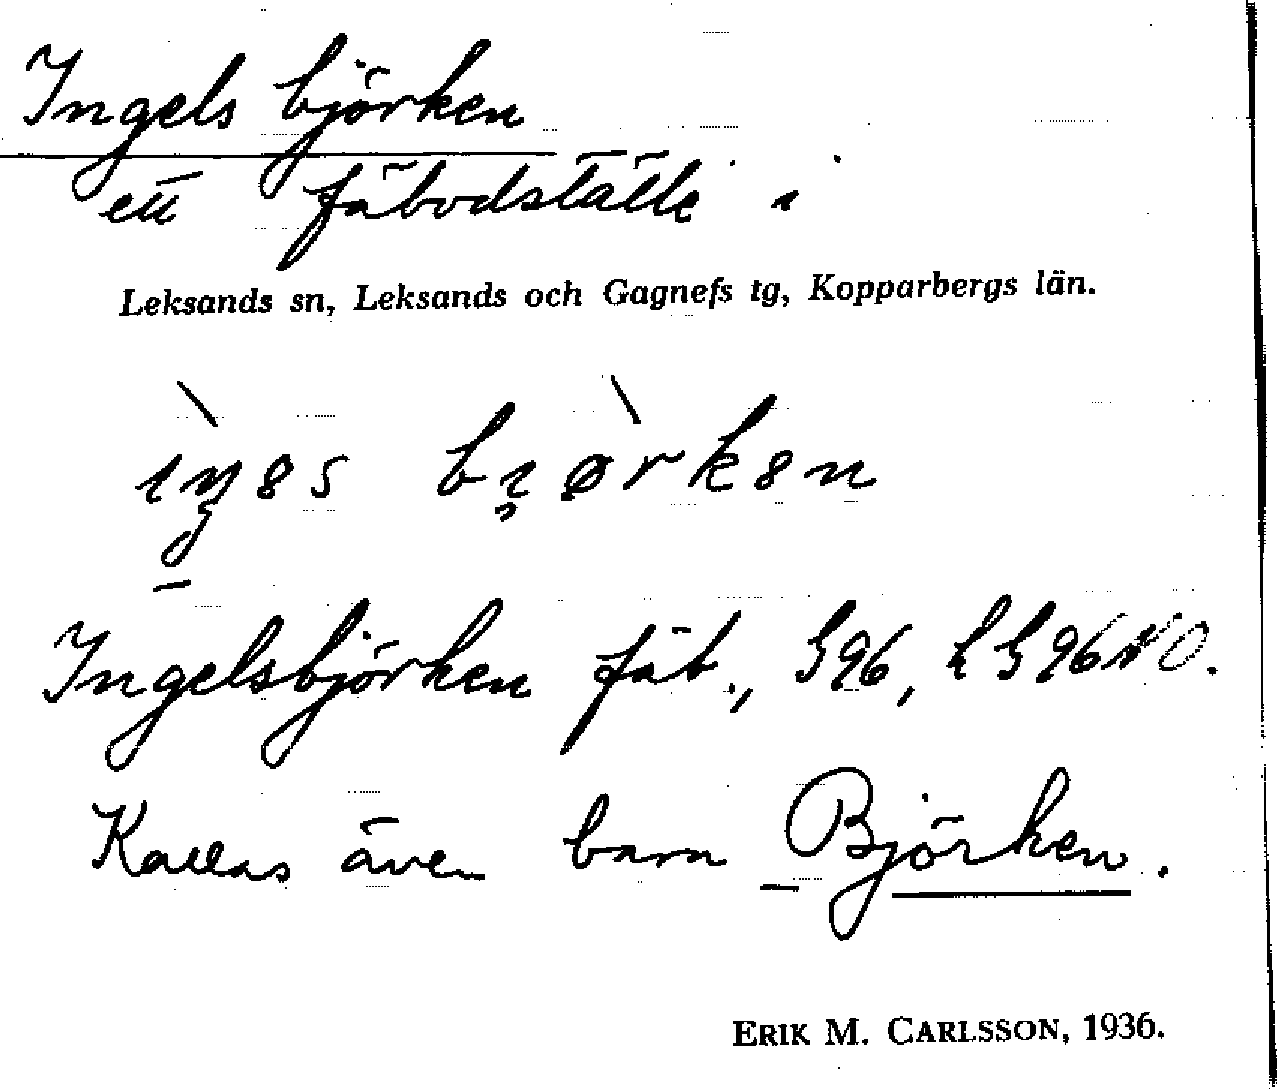 Ingels björken
ett fäbodställe i
Leksands sn, Leksands och Gagnefs tg, Kopparbergs län.
björken
Ingelsbjörken fäb., G96, LG96NO.
Kallas även bara Björken.
ERIK M. CARLSSON, 1936.